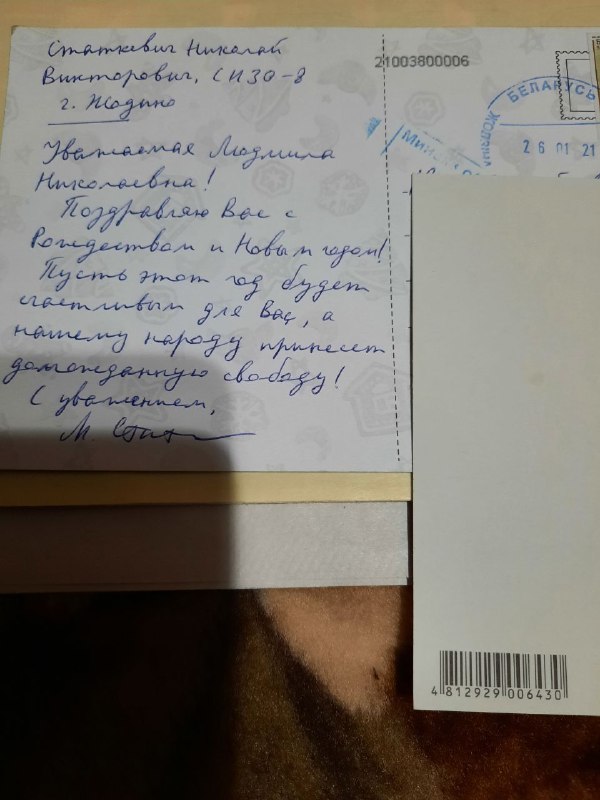 Статкевич Николай
Викторович, СИЗО-8
г. Жодино
Уважаемая Людмила
Николаевна!
Поздравляю Вас с
Рождеством и Новым годом!
Пусть этот год будет
счастливым для Вас, а
нашему народу принесет
долгожданную свободу!
С уважением,
М. Стат
21003800006
БЕЛАРУСЬ
26 01 21
4812929006430